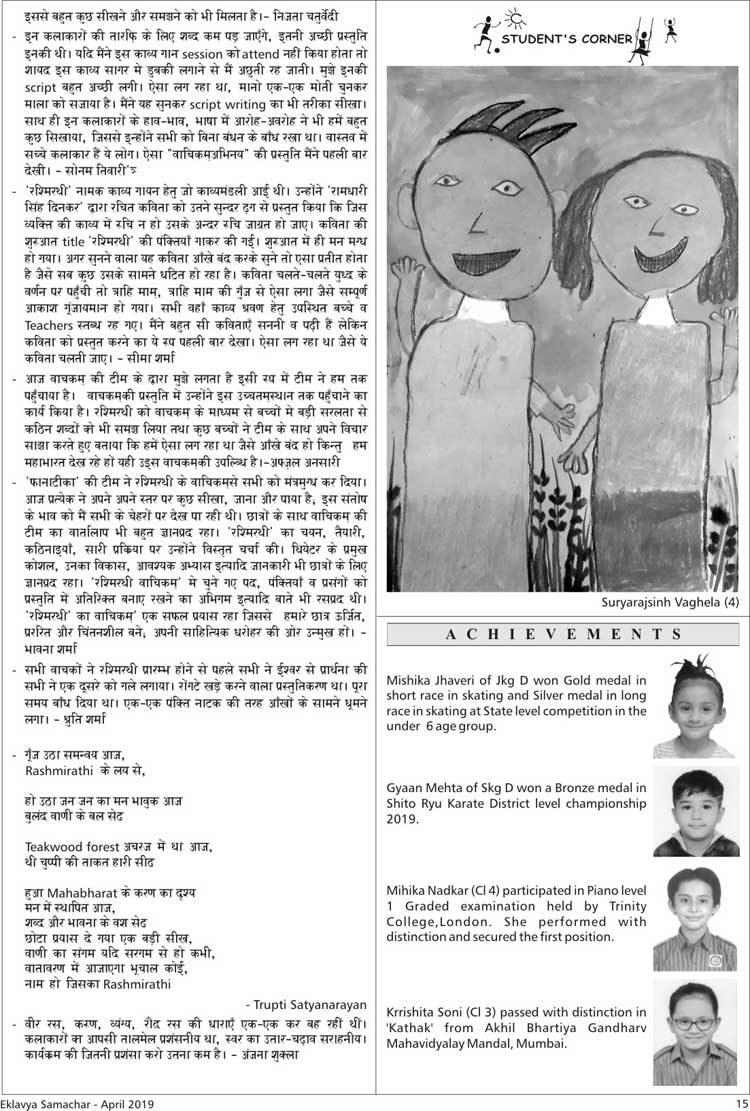 इससे बहुत कुछ सीखने और समझने को भी मिलता है।- निजता चतुर्वेदी
- इन कलाकारों की तारफि के लिए शब्द कम पड़ जाएँगे, इतनी अच्छी प्रस्तुति
इनकी थी। यदि मैंने इस काव्य गान session को attend नहीं किया होता तो
शायद इस काव्य सागर मे डुबकी लगाने से मैं अछुती रह जाती। मुझे इनकी
script बहुत अच्छी लगी। ऐसा लग रहा था, मानो एक-एक मोती चुनकर
माला को सजाया है। मैंने यह सुनकर script writing का भी तरीका सीखा।
साथ ही इन कलाकारों के हाव-भाव, भाषा में आरोह-अवरोह ने भी हमें बहुत
कुछ सिखाया, जिससे इन्होंने सभी को बिना बंधन के बाँध रखा था। वास्तव में
सच्चे कलाकार हैं ये लोग। ऐसा "वाचिकमअभिनय" की प्रस्तुति मैंने पहली बार
देखी। - सोनम तिवारी
- 'रश्मिरथी' नामक काव्य गायन हेतु जो काव्यमंडली आई थी। उन्होंने 'रामधारी
सिंह दिनकर' द्वारा रचित कविता को उतने सुन्दर ढ़ग से प्रस्तुत किया कि जिस
व्यक्ति की काव्य में रुचि न हो उसके अन्दर रुचि जाग्रत हो जाए। कविता की
शुरूआत title 'रश्मिरथी' की पंक्तियाँ गाकर की गई। शुरूआत में ही मन मग्ध
हो गया। अगर सुनने वाला यह कविता आँखे बंद करके सुने तो एसा प्रतीत होता
है जैसे सब कुछ उसके सामने घटित हो रहा है। कविता चलते-चलते युध्द के
वर्णन पर पहुँची तो त्राहि माम्, त्राहि माम की गुँज से ऐसा लगा जैसे सम्पूर्ण
आकाश गूंजायमान हो गया। सभी वहाँ काव्य श्रवण हेतु उपस्थित बच्चे व
Teachers स्तब्ध रह गए। मैंने बहुत सी कविताएँ सननी व पढ़ी हैं लेकिन
कविता को प्रस्तुत करने का ये रुप पहली बार देखा। ऐसा लग रहा था जैसे ये
कविता चलती जाए। - सीमा शर्मा
- आज वाचकम् की टीम के द्वारा मुझे लगता है इसी रुप में टीम ने हम तक
पहुँचाया है। वाचकमकी प्रस्तुति में उन्होंने इस उच्चतमस्थान तक पहुँचाने का
कार्य किया है। रश्मिरथी को वाचकम् के माध्यम से बच्चों मे बड़ी सरलता से
कठिन शब्दों को भी समझ लिया तथा कुछ बच्चों ने टीम के साथ अपने विचार
साझा करते हुए बताया कि हमें ऐसा लग रहा था जैसे आँखे बंद हो किन्तु हम
महाभारत देख रहे हों यही उइस वाचकमकी उपल्ब्धि है।-अफ़ज़ल अनसारी
- 'फानाटीका' की टीम ने रश्मिरथी के वाचिकमसे सभी को मंत्रमुग्ध कर दिया।
आज प्रत्येक ने अपने अपने स्तर पर कुछ सीखा, जाना और पाया है; इस संतोष
के भाव को मैं सभी के चेहरों पर देख पा रही थी। छात्रों के साथ वाचिकम् की
टीम का वार्तालाप भी बहुत ज्ञानप्रद रहा। 'रश्मिरथी' का चयन, तैयारी,
कठिनाइयाँ, सारी प्रक्रिया पर उन्होंने विस्तृत चर्चा की। थियेटर के प्रमुख
कोशल, उनका विकास, आवश्यक अभ्यास इत्यादि जानकारी भी छात्रों के लिए
ज्ञानप्रद रहा। 'रश्मिरथी वाचिकम्' मे चुने गए पद, पंक्तियाँ व प्रसंगों को
प्रस्तुति में अतिरिक्त बनाए रखने का अभिगम इत्यादि बाते भी रसप्रद थी।
'रश्मिरथी' का वाचिकम्' एक सफल प्रयास रहा जिससे हमारे छात्र ऊर्जित,
प्ररित और चिंतनशील बने; अपनी साहित्यिक धरोहर की ओर उन्मुख हों। -
भावना शर्मा
- सभी वाचकों ने रश्मिरथी प्रारम्भ होने से पहले सभी ने ईश्वर से प्रार्थना की
सभी ने एक दूसरे को गले लगाया। रोंगटे खड़े करने वाला प्रस्तुतिकरण था। पूरा
समय बाँध दिया था। एक-एक पंक्ति नाटक की तरह आँखों के सामने घूमने
लगा। - श्रुति शर्मा
- गूँज उठा समन्वय आज,
Rashmirathi के लय से,
हो उठा जन जन का मन भावुक आज
बुलंद वाणी के बल सेढ
Teakwood forest अचरज में था आज,
थी चुप्पी की ताकत हारी सीढ
हुआ Mahabharat के करण का दृश्य
मन में स्थापित आज,
शब्द और भावना के वश सेढ
छोटा प्रयास दे गया एक बड़ी सीख,
वाणी का संगम यदि सरगम से हो कभी,
वातावरण में आजाएगा भूचाल कोई,
नाम हो जिसका Rashmirathi
- Trupti Satyanarayan
- वीर रस, करुण, व्यंग्य, रौद्र रस की धाराएँ एक-एक कर बह रहीं थीं।
कलाकारों का आपसी तालमेल प्रशंसनीय था, स्वर का उतार-चढ़ाव सराहनीय।
कार्यक्रम की जितनी प्रशंसा करो उतना कम है। - अंजना शुक्ला
STUDENT'S CORNER
Suryarajsinh Vaghela (4)
ACHIEVEMENTS
Mishika Jhaveri of Jkg D won Gold medal in
short race in skating and Silver medal in long
race in skating at State level competition in the
under 6 age group.
Gyaan Mehta of Skg D won a Bronze medal in
Shito Ryu Karate District level championship
2019.
Mihika Nadkar (Cl 4) participated in Piano level
1 Graded examination held by Trinity
College,London. She performed with
distinction and secured the first position.
Krrishita Soni (Cl 3) passed with distinction in
'Kathak' from Akhil Bhartiya Gandharv
Mahavidyalay Mandal, Mumbai.
Eklavya Samachar - April 2019
15